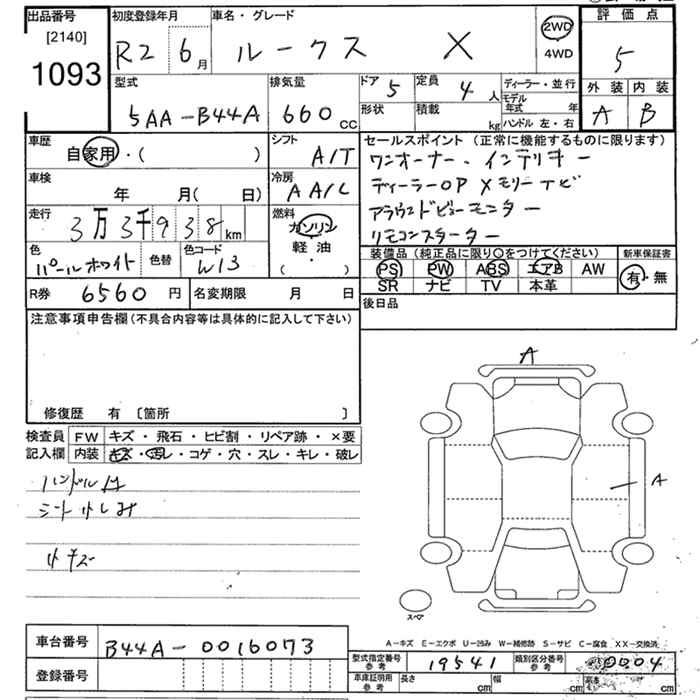 出品番号
[2140]
1093
初度登録年月
R2 6月
車名・グレード
ルークス X
2WD
4WD
評価点
5
外装 内装
A B
型式
5AA-B44A
排気量
660 cc
ドア 5
定員 4 人
形状
積載 kg
ディーラー・並行
モデル年式 年
ハンドル 左・右
車歴
自家用・( )
シフト
A/T
車検
年 月( 日)
冷房
AA/C
走行
3万3千938 km
燃料
ガソリン
軽油
( )
色
パールホワイト
色替
色コード
W13
R券 6560 円
名変期限 月 日
セールスポイント(正常に機能するものに限ります)
ワンオーナー、インテリキー
ディーラーOP メモリーナビ
アラウンドビューモニター
リモコンスターター
装備品(純正品に限り○をつけてください)
PS PW ABS エアB AW
SR ナビ TV 本革
新車保証書
有・無
後日品
注意事項申告欄(不具合内容等は具体的に記入して下さい)
修復歴 有 〔箇所 〕
検査員記入欄
FW キズ・飛石・ヒビ割・リペア跡・×要
内装 キズ・汚レ・コゲ・穴・スレ・キレ・破レ
小キズ
A
A
スペア
A-キズ E-エクボ U-凹み W-補修跡 S-サビ C-腐食 XX-交換済
車台番号
B44A-0016073
登録番号
型式指定番号参考
19541
類別区分番号参考
0004
車庫証明用参考
長さ cm
幅 cm
高さ cm